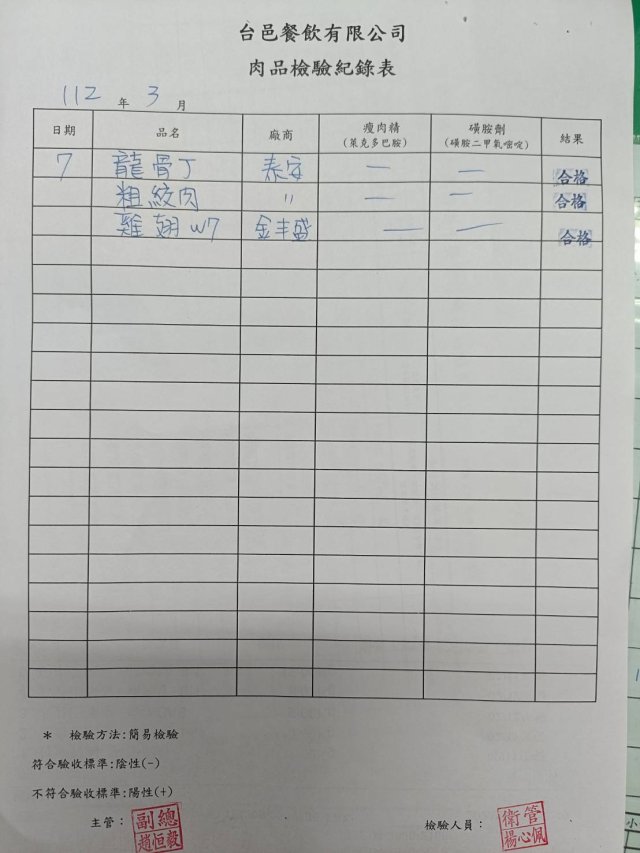 台邑餐飲有限公司
肉品檢驗紀錄表
112 年 3 月
日期 品名 廠商 瘦肉精 (萊克多巴胺) 磺胺劑 (磺胺二甲氧嘧啶) 結果
7 龍骨丁 泰安 — — 合格
粗絞肉 〃 — — 合格
雞翅W7 金丰盛 — — 合格
* 檢驗方法:簡易檢驗
符合驗收標準:陰性(-)
不符合驗收標準:陽性(+)
主管: 副總 趙恒毅 檢驗人員: 衛管 楊心佩